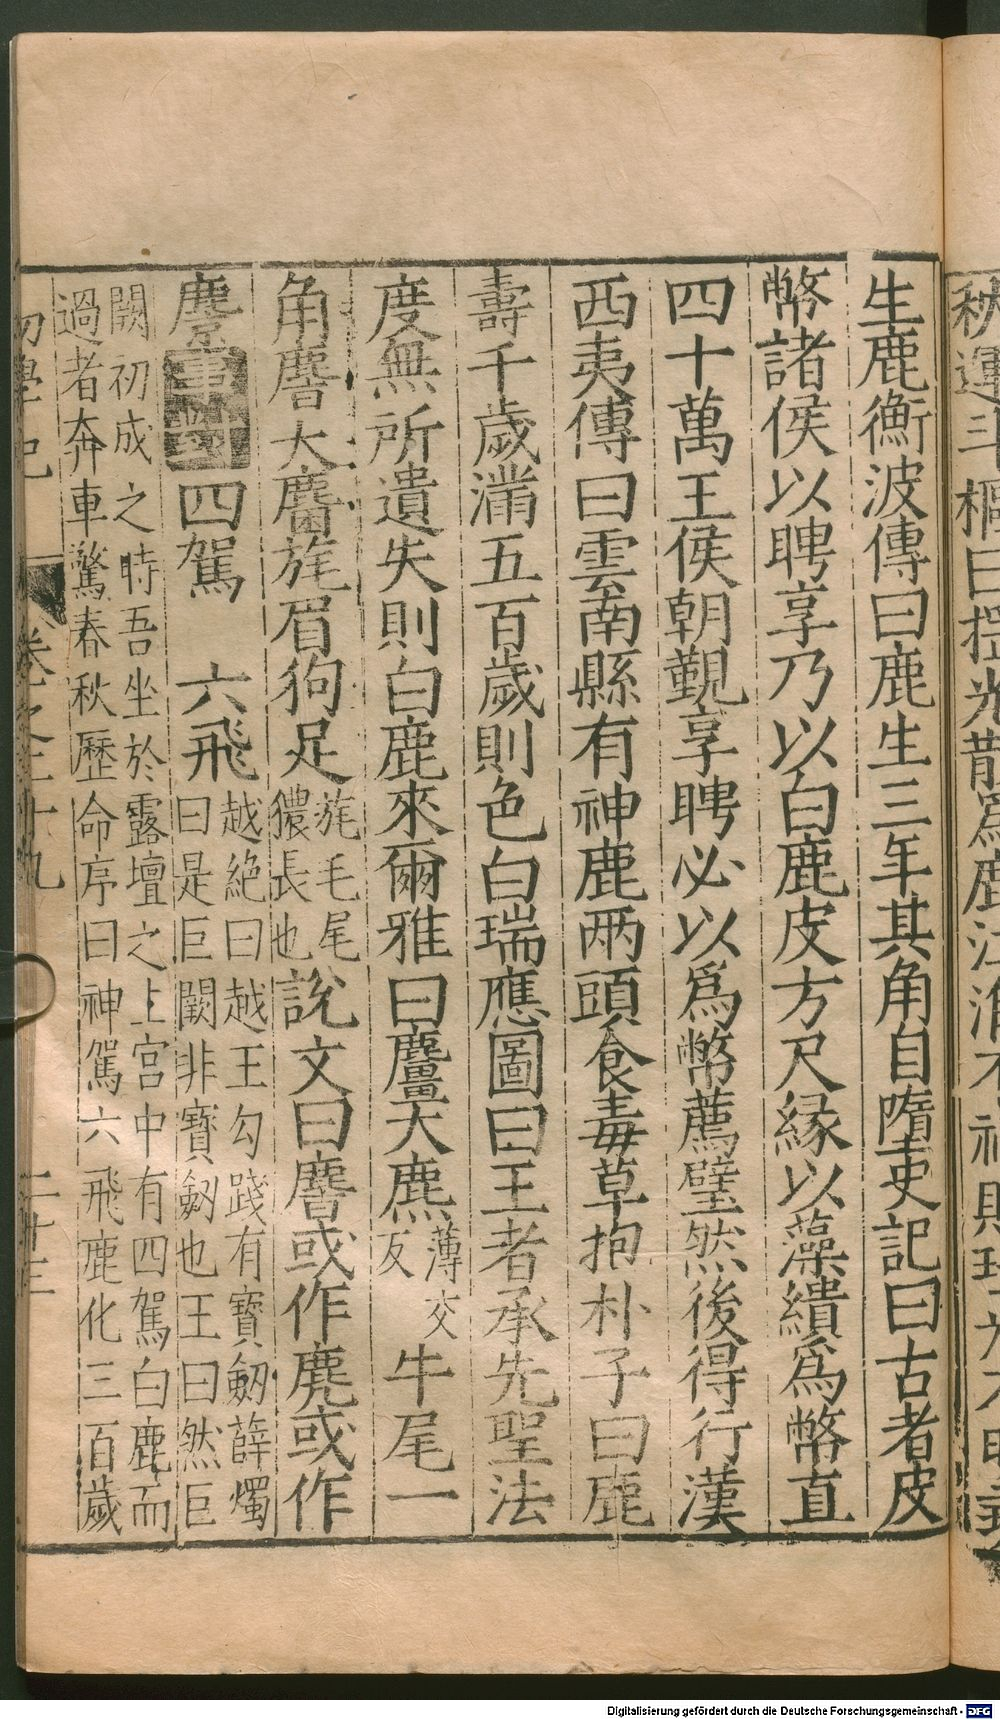 生鹿衡波傳曰鹿生三年其角自墮史記曰古者皮
幣諸侯以聘享乃以白鹿皮方尺縁以藻繢爲幣直
四十萬王侯朝覲享聘必以爲幣薦璧然後得行漢
西夷傳曰雲南縣有神鹿兩頭食毒草抱朴子曰鹿
壽千歲滿五百歲則色白瑞應圖曰王者承先聖法
度無所遺失則白鹿來爾雅曰麠大麃薄交反牛尾一
角麐大麕旄眉狗足旄毛尾獽長也說文曰麐或作麃或作
麖事對四駕　六飛越絶曰越王勾踐有寶劒薛燭
曰是巨闕非寶劒也王曰然巨
闕初成之時吾坐於露壇之上宮中有四駕白鹿而
過者奔車驚春秋歷命序曰神駕六飛鹿化三百歲
初學記　卷之二十九　二十三
Digitalisierung gefördert durch die Deutsche Forschungsgemeinschaft - DFG